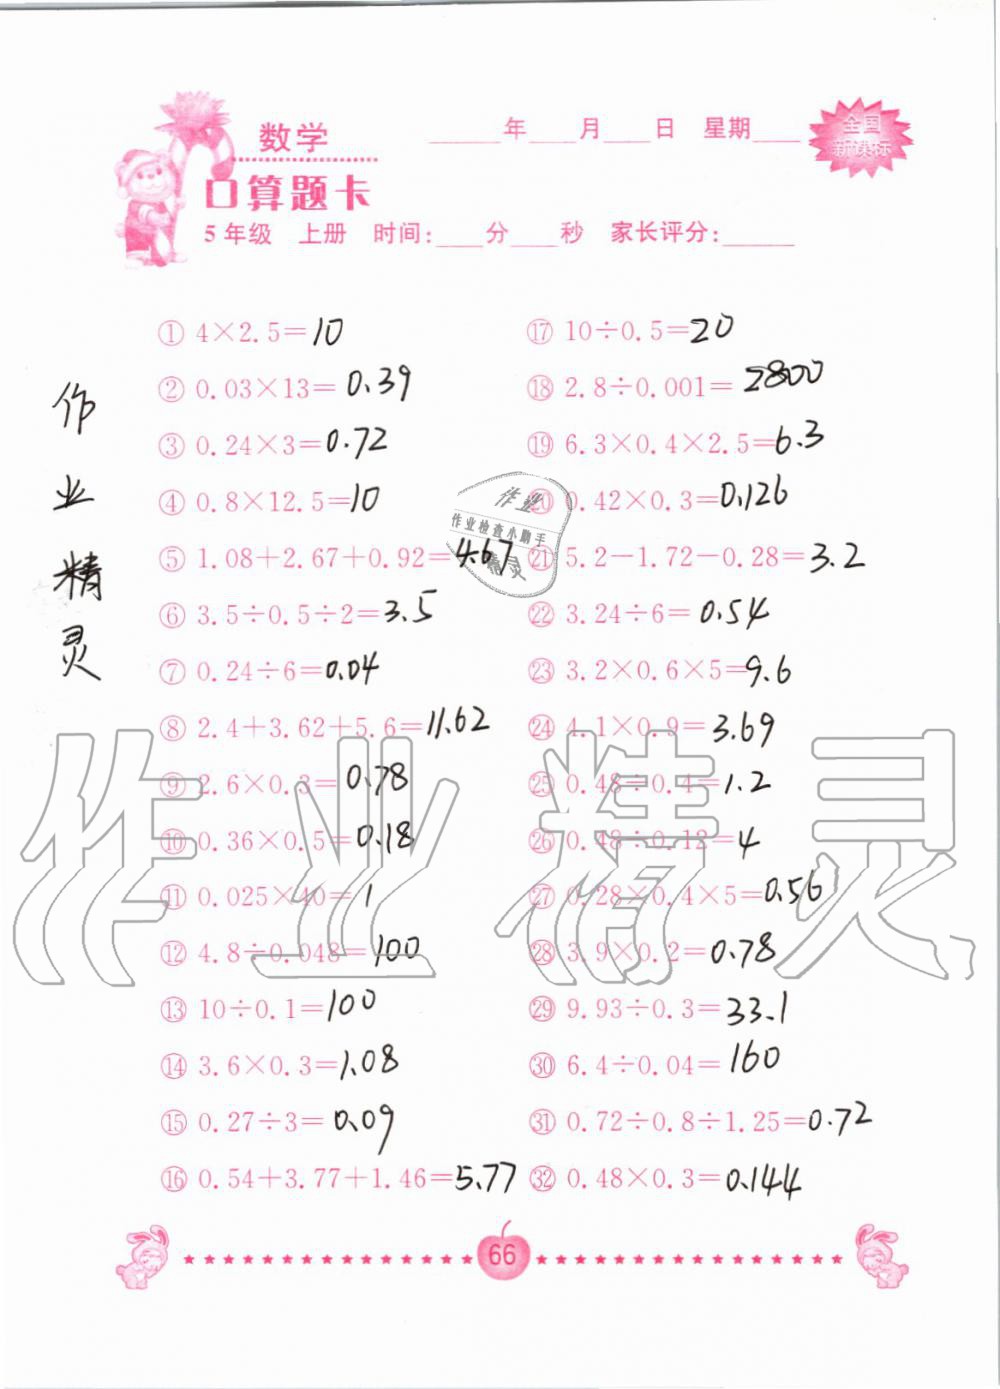 数学
____年____月____日 星期____
全国
新课标
口算题卡
5年级 上册 时间:____分____秒 家长评分:____
① 4×2.5=10
② 0.03×13=0.39
③ 0.24×3=0.72
④ 0.8×12.5=10
⑤ 1.08+2.67+0.92=4.67
⑥ 3.5÷0.5÷2=3.5
⑦ 0.24÷6=0.04
⑧ 2.4+3.62+5.6=11.62
⑨ 2.6×0.3=0.78
⑩ 0.36×0.5=0.18
⑪ 0.025×40=1
⑫ 4.8÷0.048=100
⑬ 10÷0.1=100
⑭ 3.6×0.3=1.08
⑮ 0.27÷3=0.09
⑯ 0.54+3.77+1.46=5.77
⑰ 10÷0.5=20
⑱ 2.8÷0.001=2800
⑲ 6.3×0.4×2.5=6.3
⑳ 0.42×0.3=0.126
㉑ 5.2-1.72-0.28=3.2
㉒ 3.24÷6=0.54
㉓ 3.2×0.6×5=9.6
㉔ 4.1×0.9=3.69
㉕ 0.48÷0.4=1.2
㉖ 0.48÷0.12=4
㉗ 0.28×0.4×5=0.56
㉘ 3.9×0.2=0.78
㉙ 9.93÷0.3=33.1
㉚ 6.4÷0.04=160
㉛ 0.72÷0.8÷1.25=0.72
㉜ 0.48×0.3=0.144
作
业
精
灵
作业
作业检查小助手
精灵
作业精灵
66